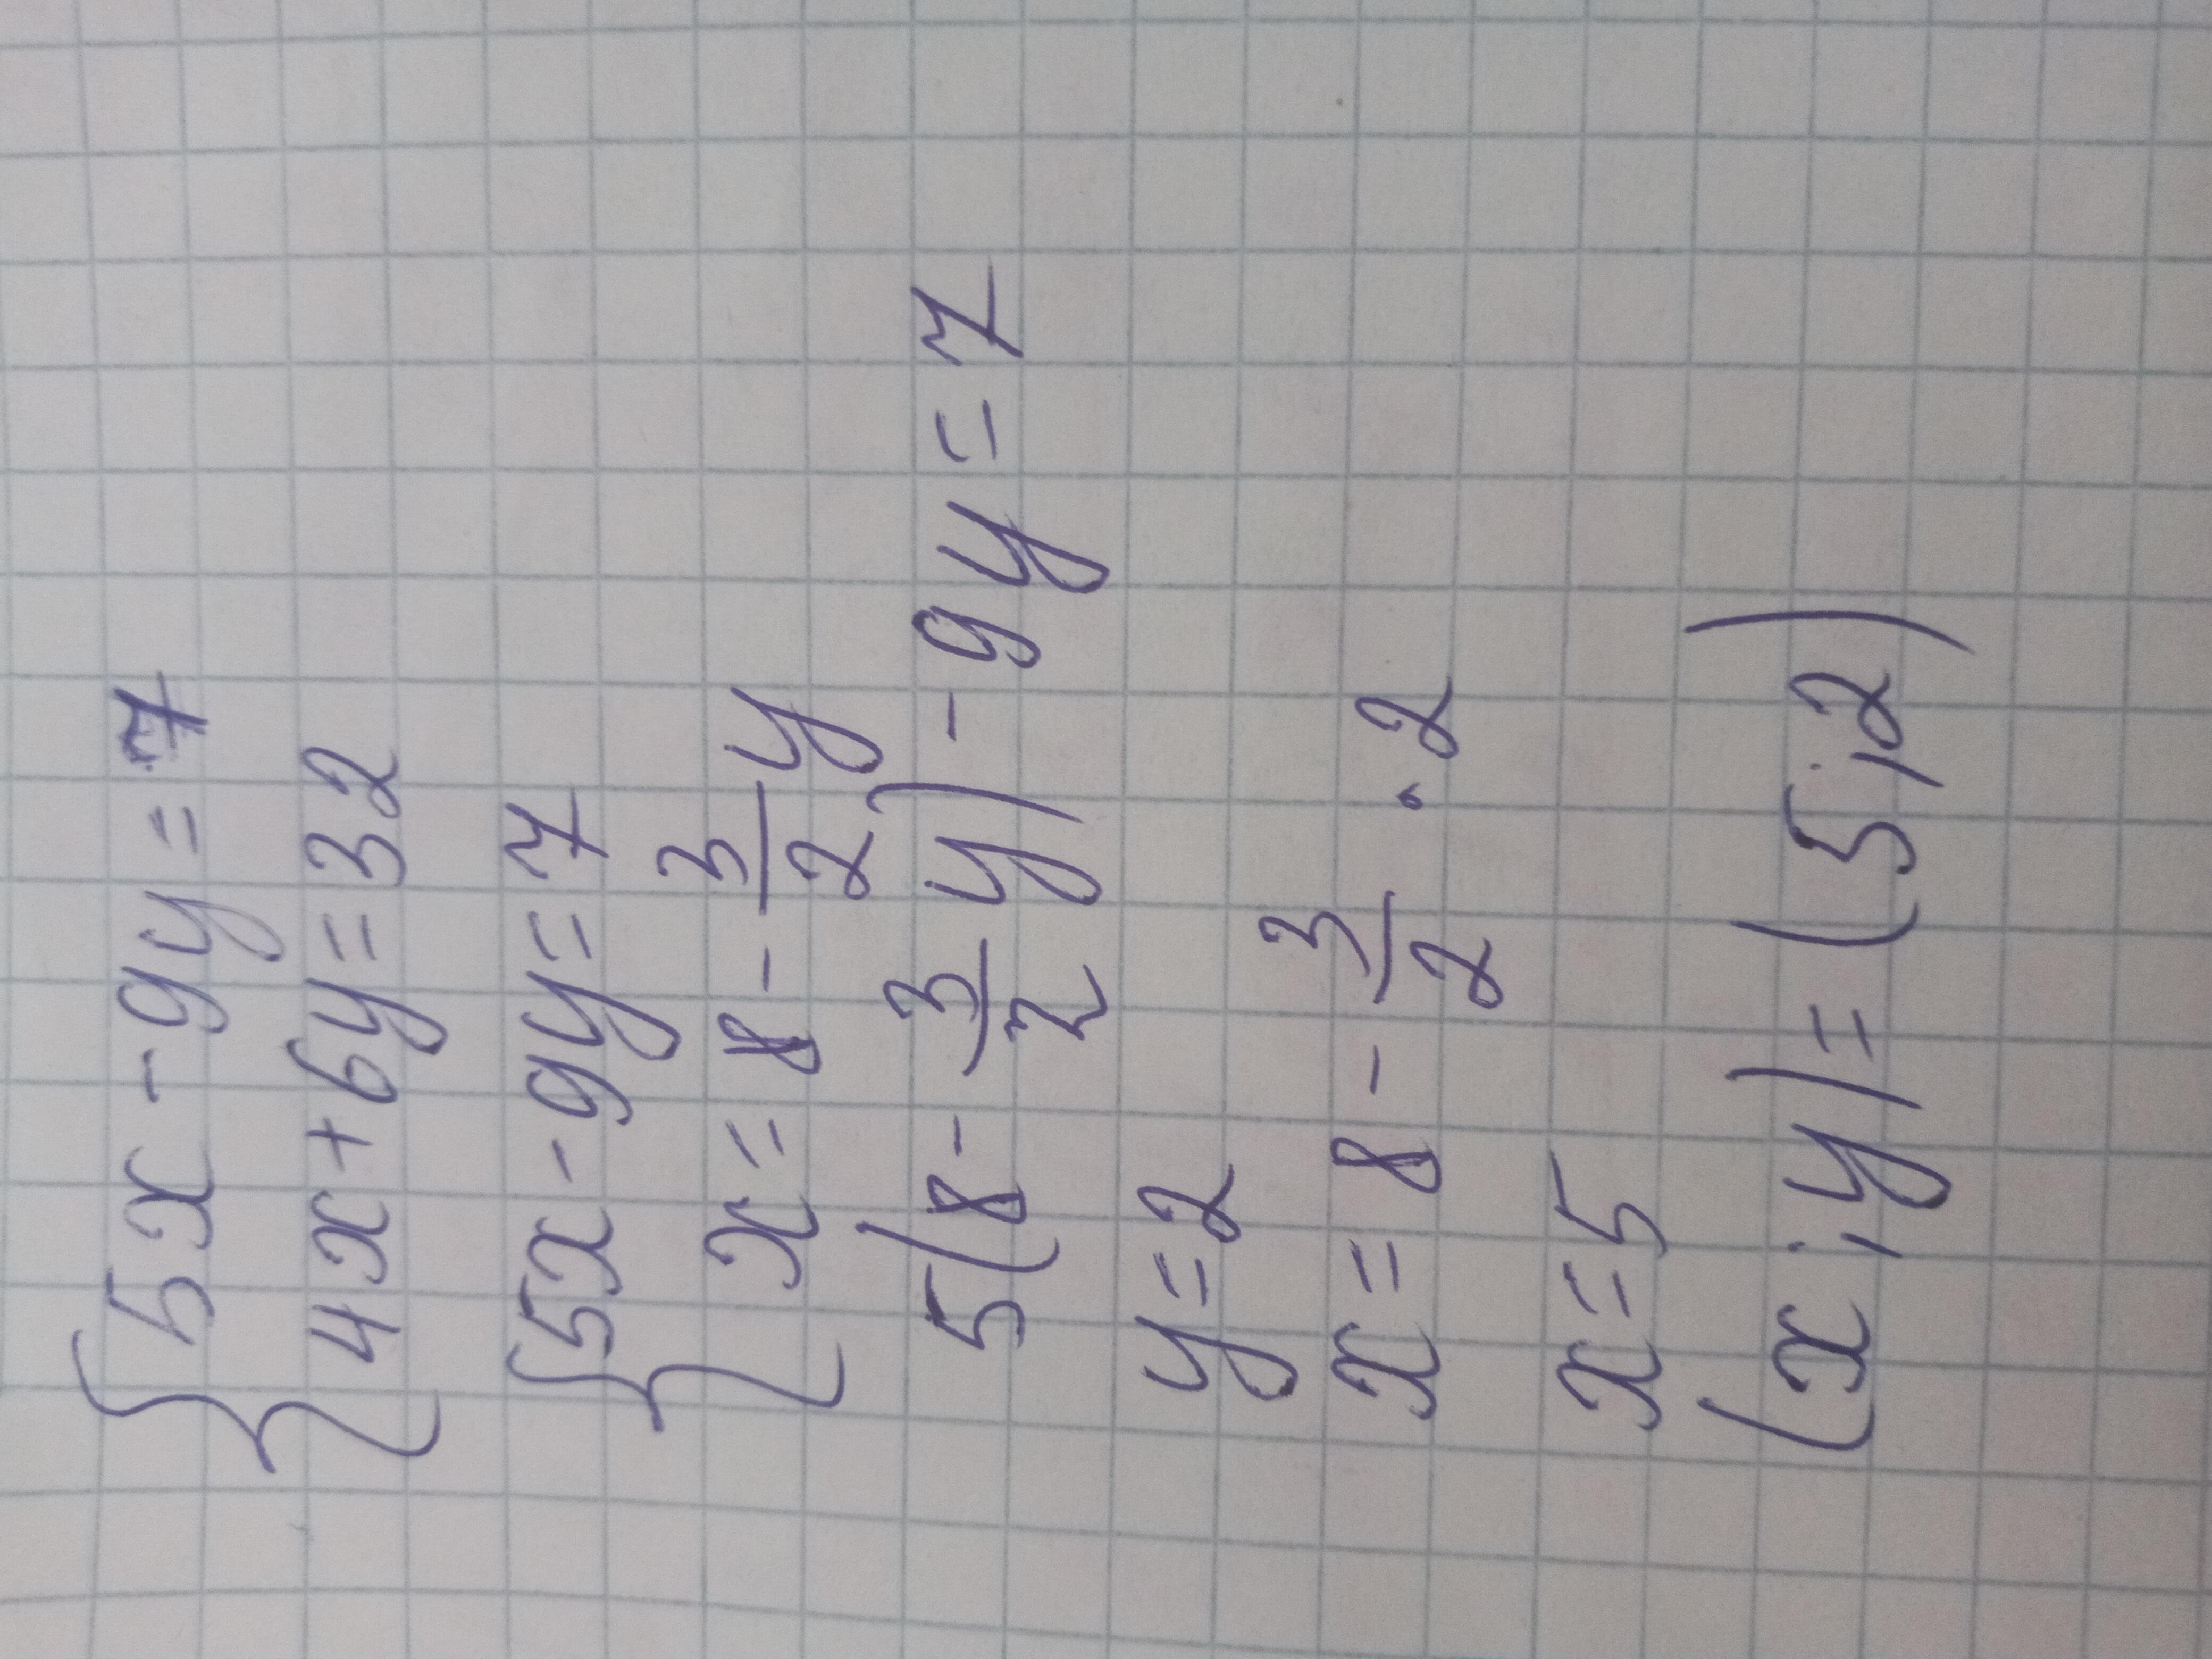 {5x - 9y = 7
4x + 6y = 32
{5x - 9y = 7
x = 8 - 3/2 y
5(8 - 3/2 y) - 9y = 7
y = 2
x = 8 - 3/2 · 2
x = 5
(x ; y) = (5 ; 2)